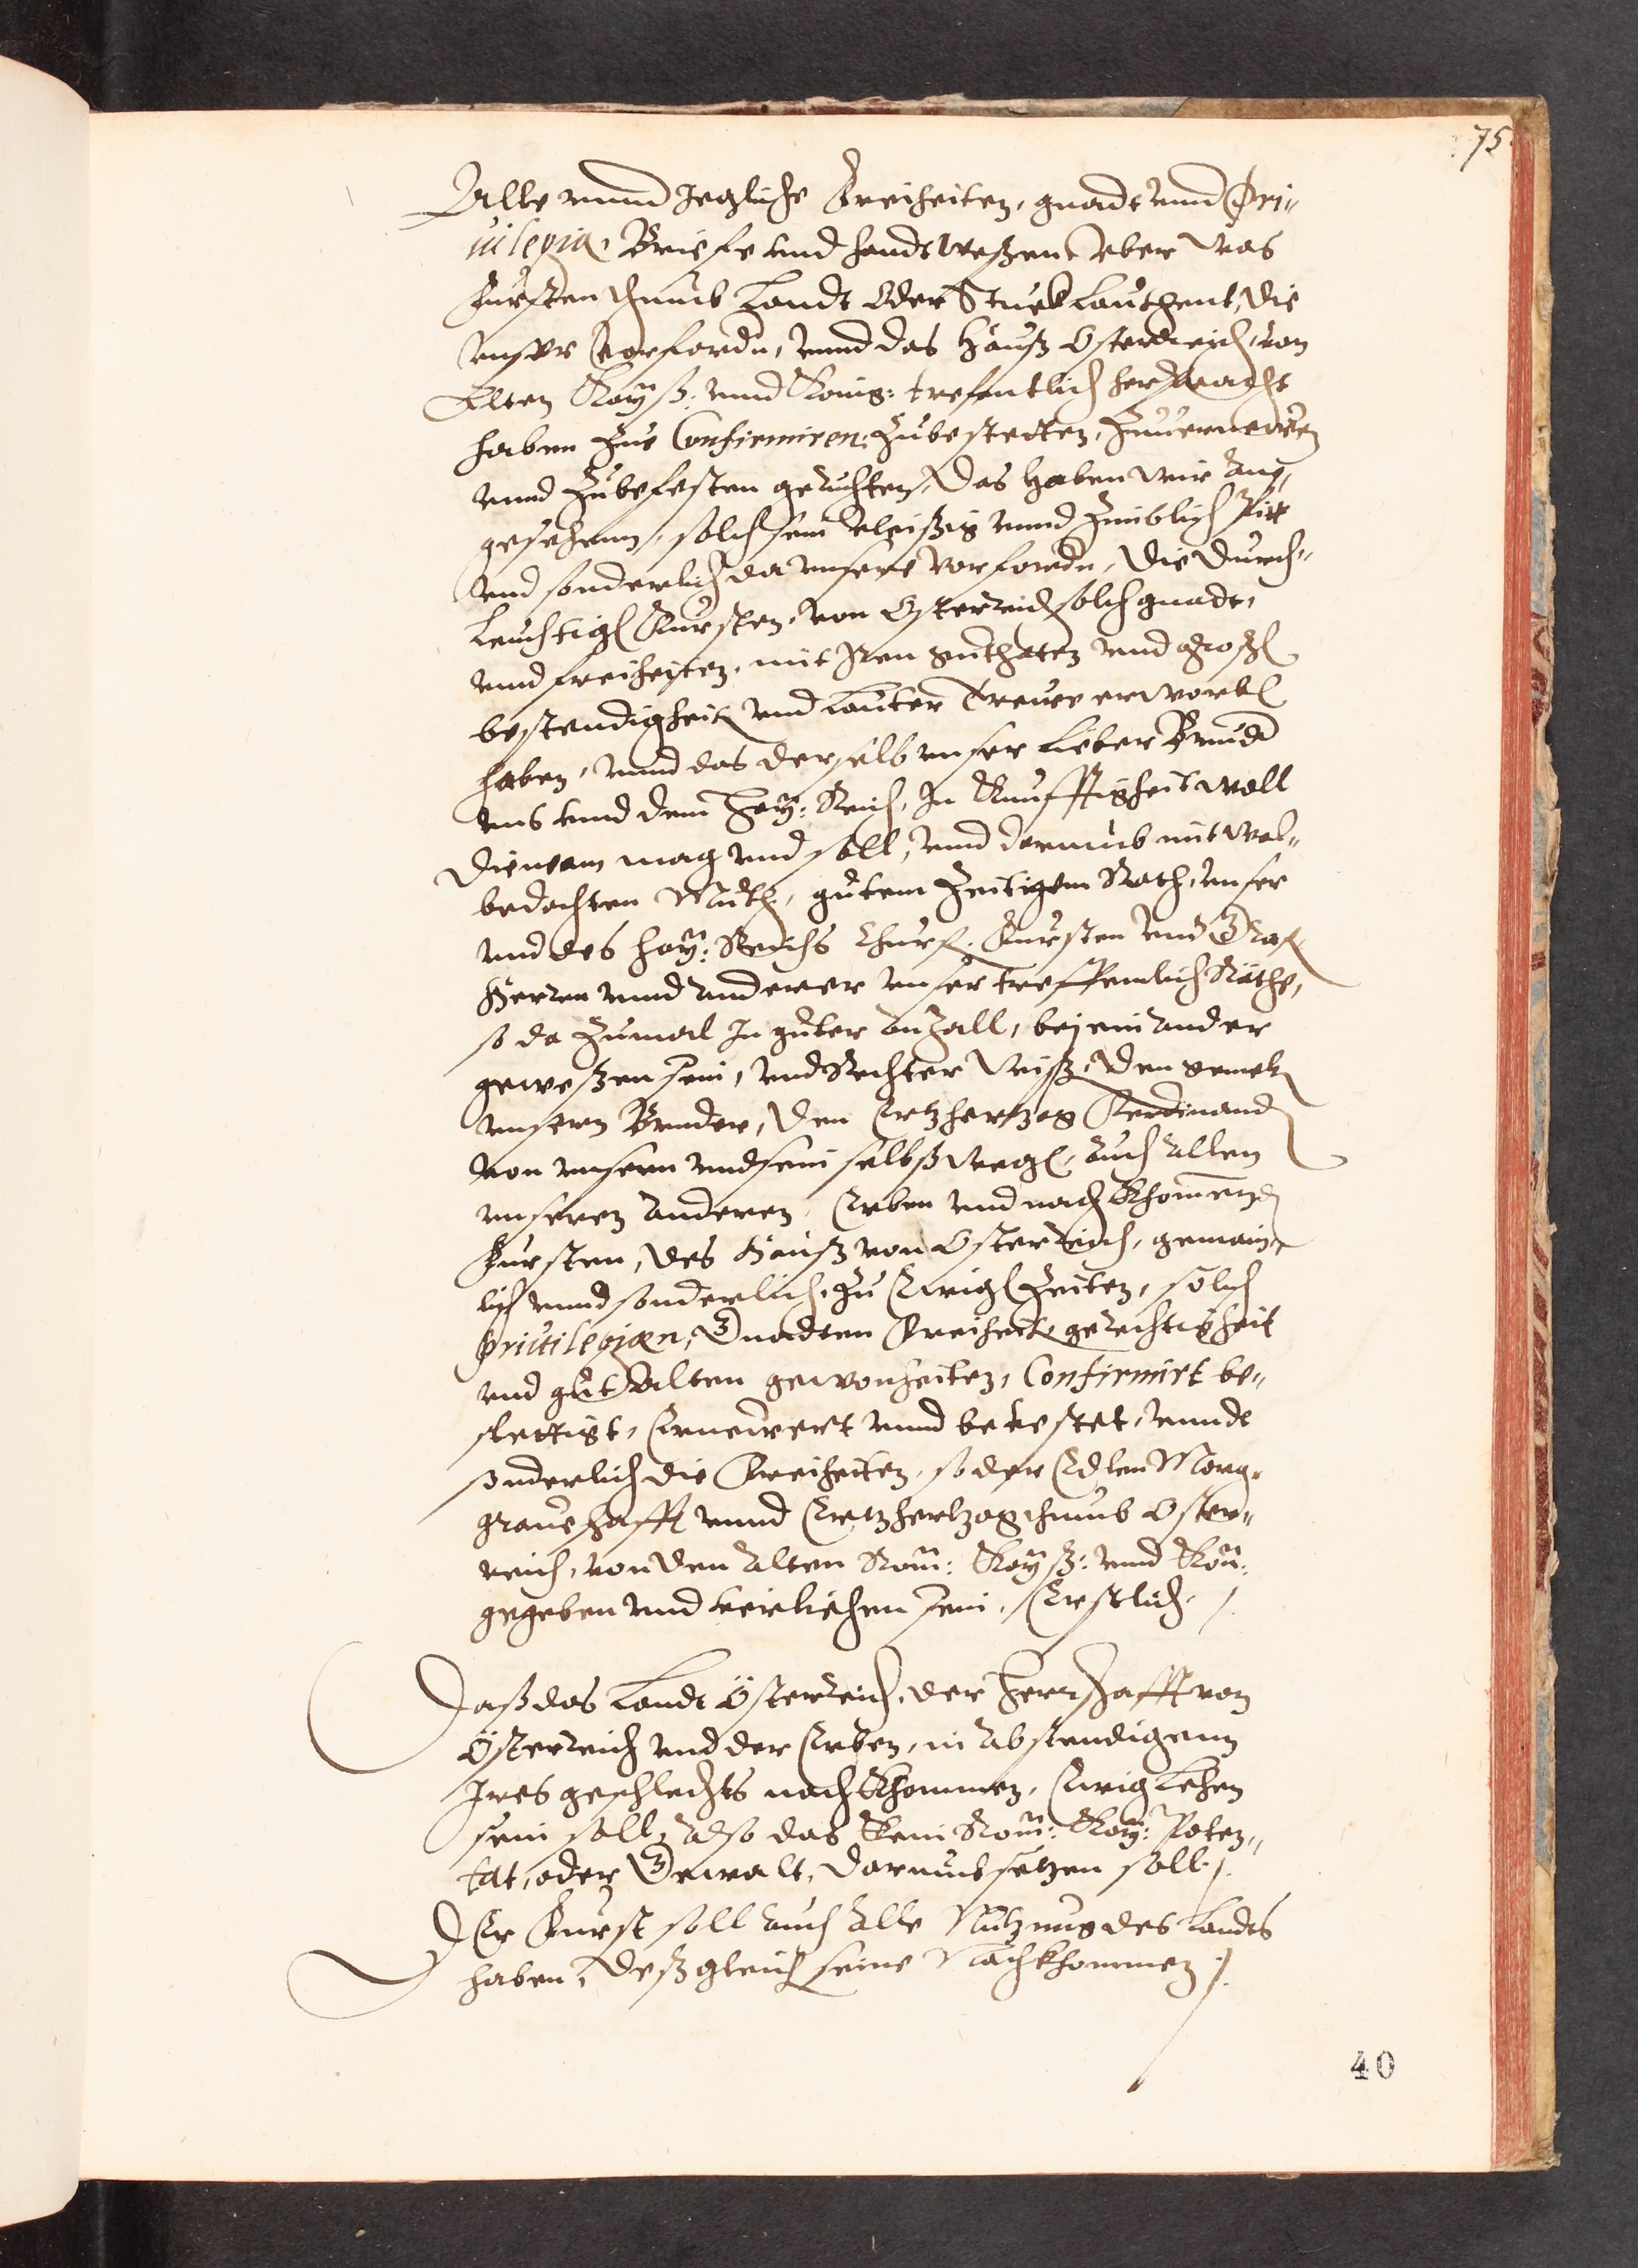 75
Alle vnnd Jegliche Freiheiten, gnadt vnnd Pri„
uilegia, Briefe vnd handtveßent, vber was
Fursten thumb Landt oder Stuckh lauthent, die
vnser Vorfordn, vnnd das Hauß Osterreich, von
Alten Kayß: vnnd König: trefentlich her bracht
haben Zue Confirmiren, Zubestetten, Zuuernewren
vnnd Zubefesten geruchten, Das Haben wir An„
gesehenn, solch sein vleißig vnnd Zimblich Pitt
vnd sonderlich da vnsere vorfordn, die Durch„
leuchtigē Fursten, von Osterreich solch gnadt,
vnnd freiheiten, mit Iren guthaten vnd großē
bestendigheit vnd lauter treuee erworbē
haben, vnnd das derselb vnser lieber Bruder
vns vnnd dem Hey: Reich, In Kunfftigheit woll
dienen mag vnd soll, vnnd darumb mit wol„
bedachten Muth, gutem Zeitigem Rath, vnser
vnd des Hay: Reichs Churf: Fursten vnd Graf
Herren vnnd Anderer vnser treffenlich Räthe,
so da Zumal In guter Anzall, bej einander
geweßen sein, vnd Rechter wiß, den gemelt
vnsern Bruder, den Ertzhertzog Ferdinand
von vnsern vnd sein selbß wegē, Auch Allen
vnseren Anderen, Erben vnd nach Khomend
Fursten, des Hauß von Osterreich, gemain„
lich vnnd sonderlich, Zu Ewigē Zeiten, solch
Priuilegien, Gnadten Freiheit gerechtigheit
vnd gut Alten gewonheiten, Confirmirt be„
stettigt, Ernewert vnnd beuestet, vnndt
sonderlich die Freiheiten, so der Edlen Marg„
graueschafft vnnd Ertzhertzogthumb Oster„
reich, von den Alten Röm: Kayß: vnnd Kön:
gegeben vnd verliehen sein, Erstlich.
Daß das Landt Österreich, der Herrschafft von
Österreich vnd der Erben, in Abstendigenn
Ires geschlechts nach Khommen, Ewig Lehen
sein soll, Also das kein Röm: Kay: Poten„
tat, oder Gewalt, darumb setzen soll.
DEr Furst soll Auch Alle Nutzung des Landts
haben, deßgleich seine Nachkhommen.
40